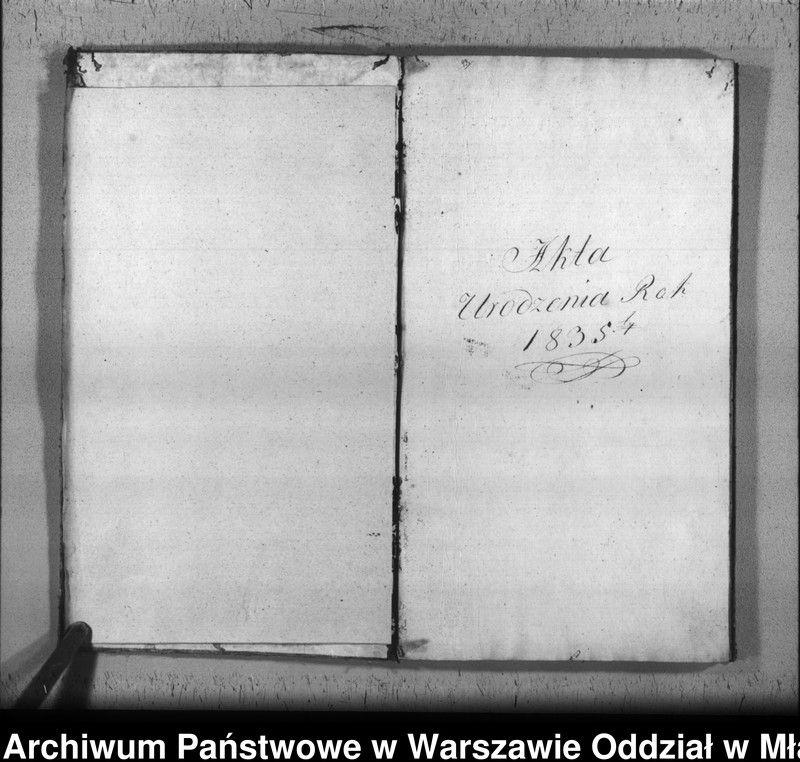 Akta
Urodzenia Rok
1835
Archiwum Państwowe w Warszawie Oddział w Mła